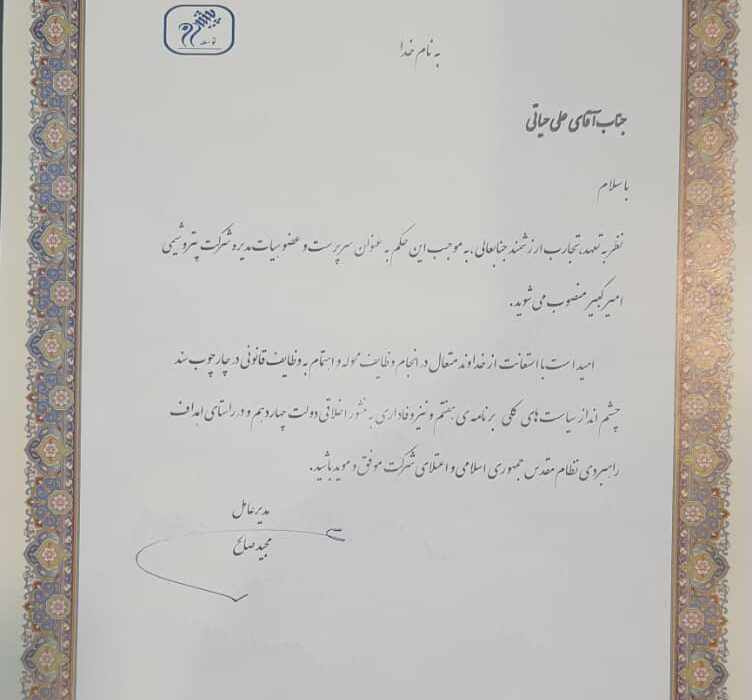 پیشرو
توسعه
به نام خدا
جناب آقای علی حیاتی
با سلام
نظر به تعهد، تجارب ارزشمند جنابعالی، به موجب این حکم به عنوان سرپرست و عضو هیات مدیره شرکت پتروشیمی
امیرکبیر منصوب می شوید.
امید است با استعانت از خداوند متعال در انجام وظایف محوله و اهتمام به وظایف قانونی در چارچوب سند
چشم انداز سیاست های کلی برنامه ی هفتم و نیز وفاداری به منشور اخلاقی دولت چهاردهم و در راستای اهداف
راهبردی نظام مقدس جمهوری اسلامی و اعتلای شرکت موفق و موید باشید.
مدیرعامل
مجید صالح